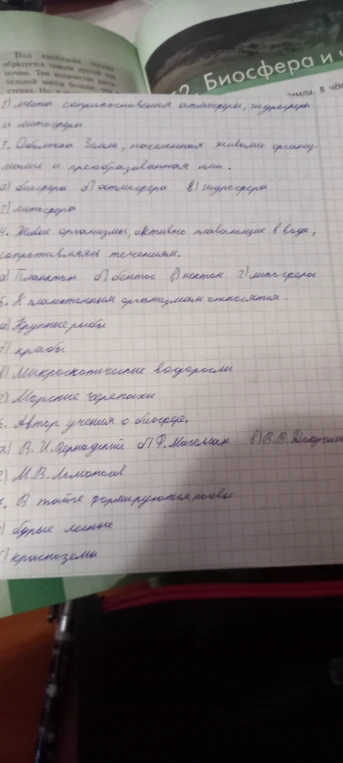 Под хвойными лесами
образуется совсем другой тип
почвы. Там
тельной массы больше, чем
2. Биосфера и ч
г) места соприкосновения атмосферы, гидросферы
и литосферы
3. Оболочка Земли, населенная живыми организ-
мами и преобразованная ими.
а) биосфера б) атмосфера в) гидросфера
г) литосфера
4. Живые организмы, активно плавающие в воде,
сопротивляясь течениям.
а) Планктон б) бентос в) нектон г) литосфера
5. К планктонным организмам относятся.
а) Крупные рыбы
б) крабы
в) Микроскопические водоросли
г) Морские черепахи
6. Автор учения о биосфере.
а) В. И. Вернадский б) Ф. Магеллан в) В. В. Докучаев
г) М. В. Ломоносов
7. В тайге формируются почвы
а) бурые лесные
б) красноземы